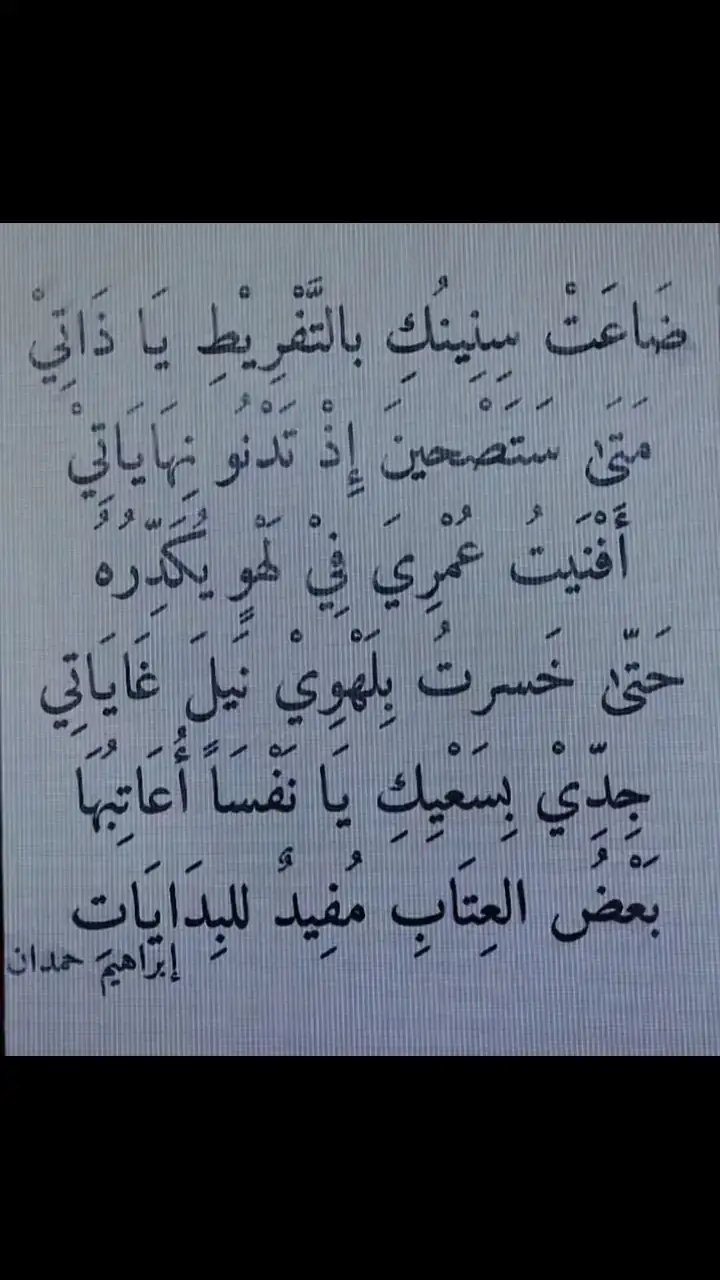 ضَاعَتْ سِنِينُكِ بالتَّفْرِيْطِ يَا ذَاتِيْ
مَتَىٰ سَتَصْحينَ إِذْ تَدْنُو نِهَايَاتِيْ
أَفْنَيتُ عُمْرِيَ فِيْ لَهْوٍ يُكَدِّرُهُ
حَتّىٰ خَسرتُ بِلَهْوِيْ نَيلَ غَايَاتِي
جِدِّيْ بِسَعْيِكِ يَا نَفْسَاً أُعَاتِبُهَا
بَعْضُ العِتَابِ مُفِيدٌ للبِدَايَات
إبراهيمَ حمدان